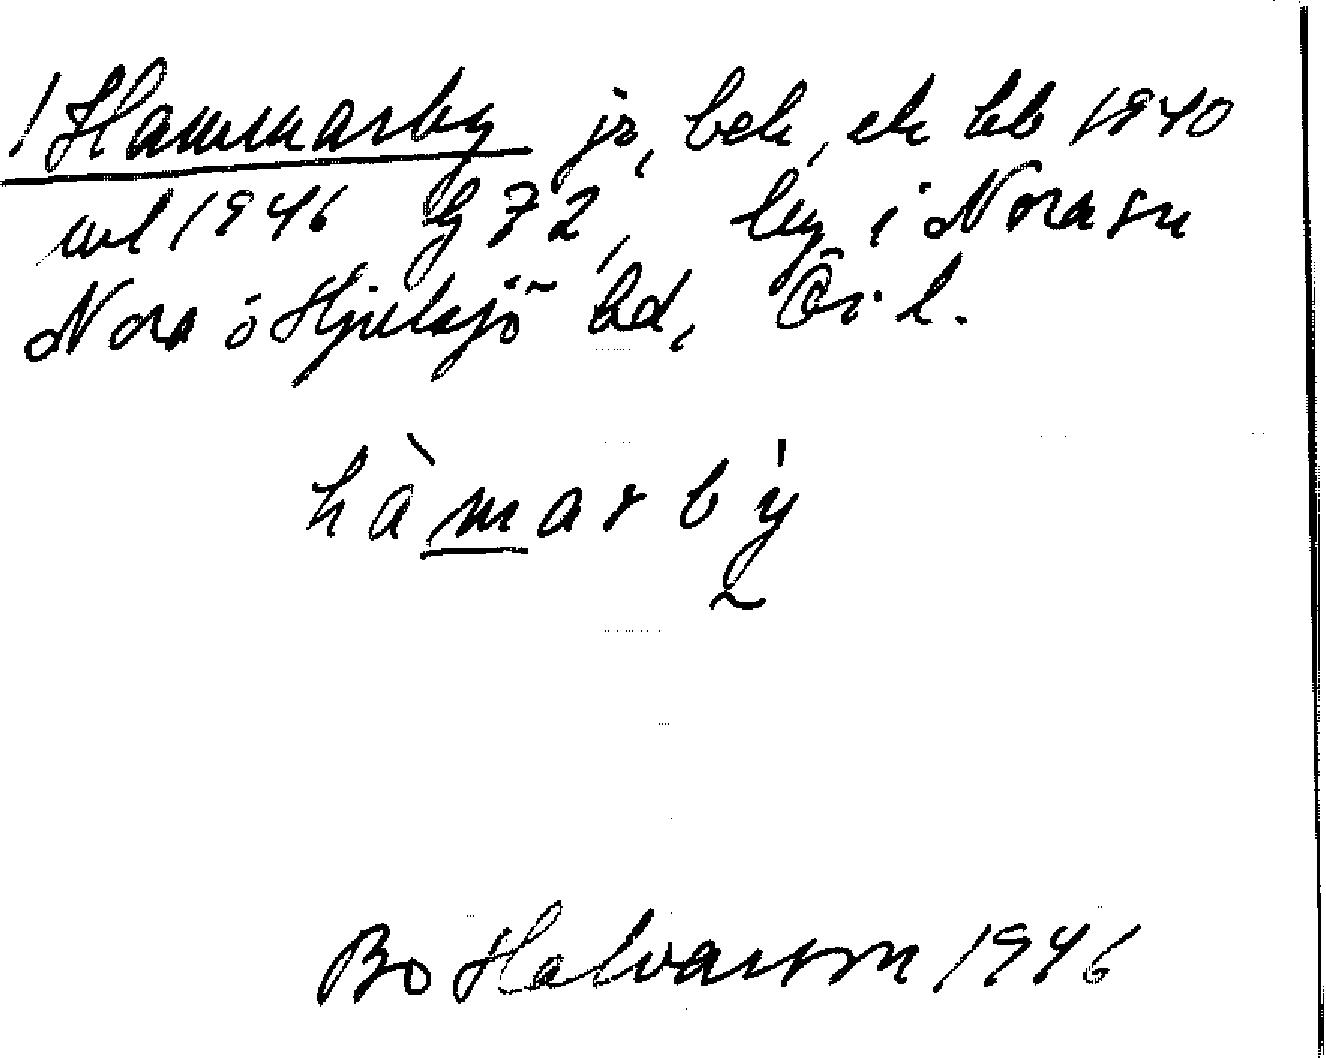 /Hammarby jr, bek, ek bb 1940
1946 G 72, i Nora sn
Nora o Hjulsjö hd, Ör. l.
hàmarbý
Bo Halvarson 1946